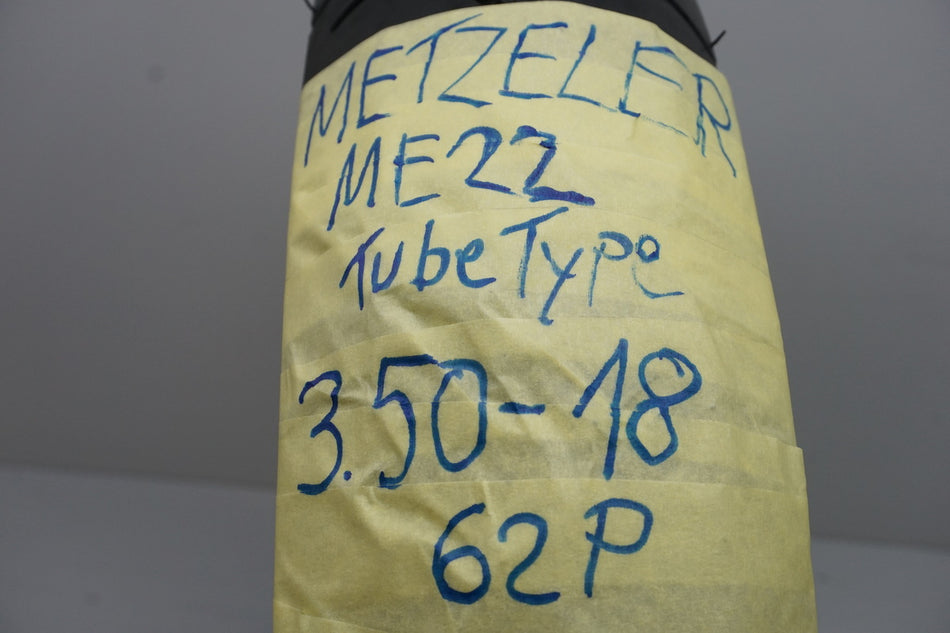 METZELER
ME22
TubeType
3.50-18
62P